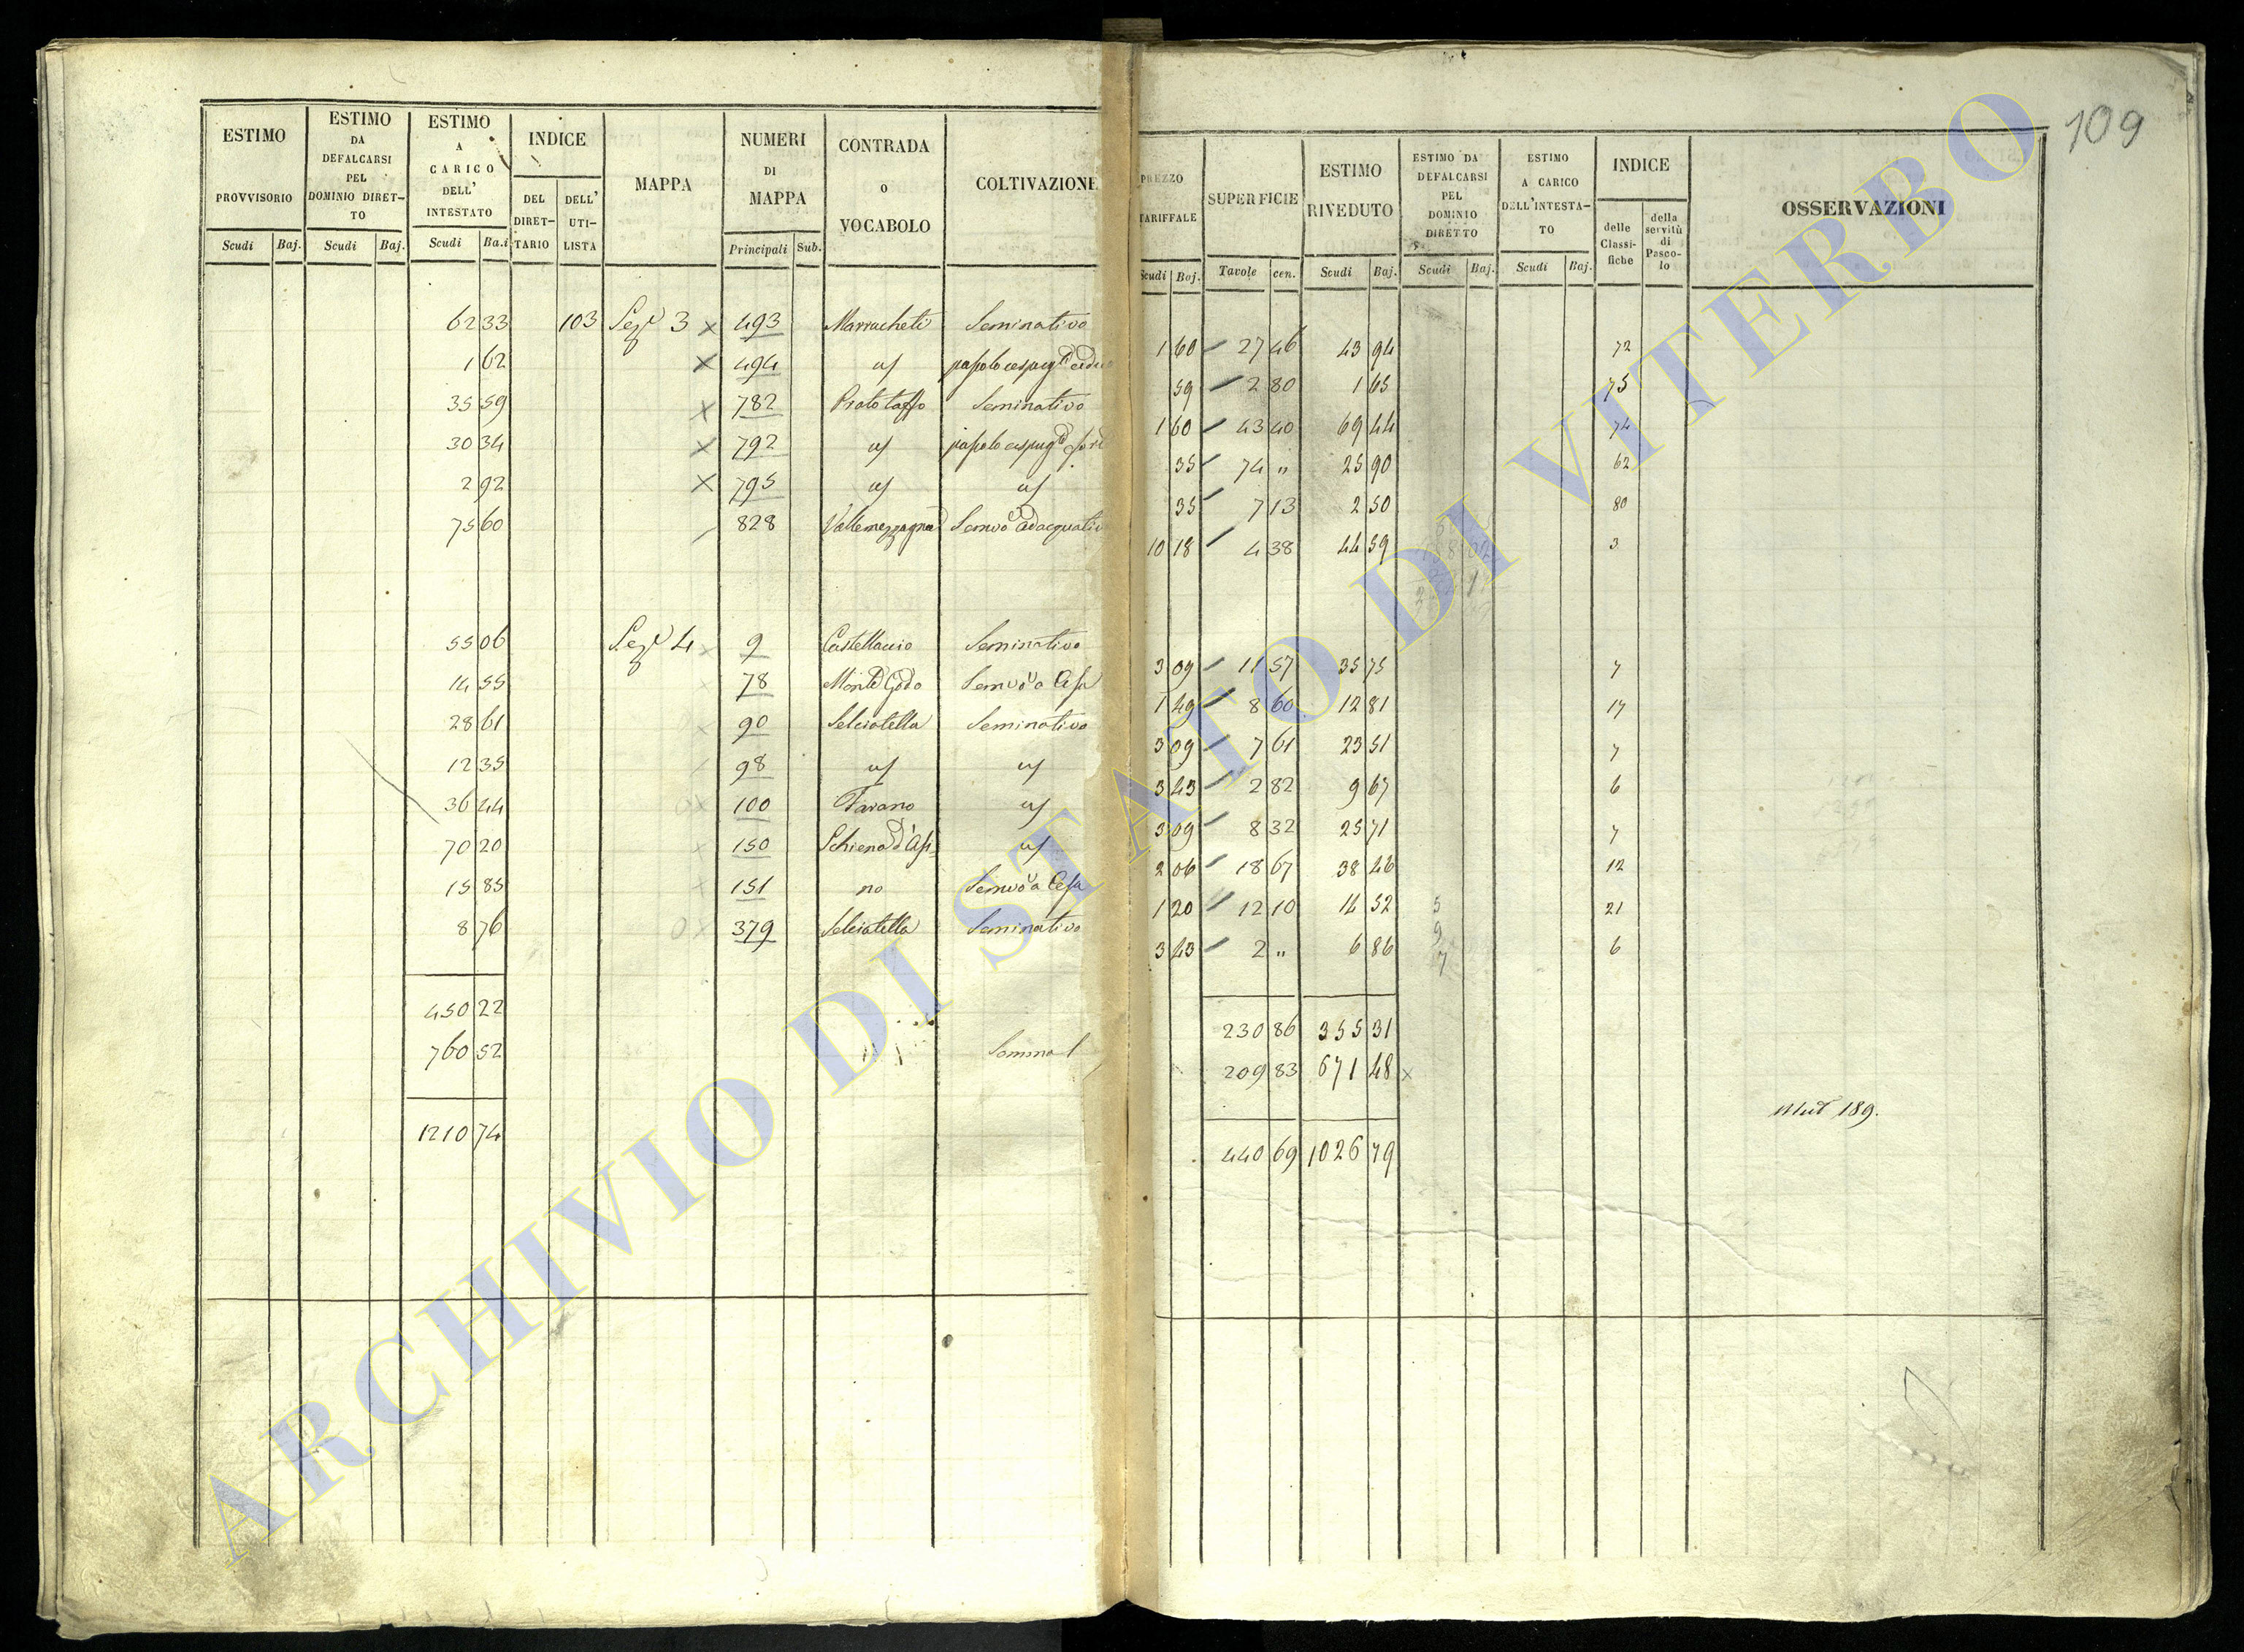 109
ESTIMO PROVVISORIO | ESTIMO DA DEFALCARSI PEL DOMINIO DIRETTO | ESTIMO A CARICO DELL' INTESTATO | INDICE | MAPPA | NUMERI DI MAPPA | CONTRADA O VOCABOLO | COLTIVAZIONE | PREZZO TARIFFALE | SUPERFICIE | ESTIMO RIVEDUTO | ESTIMO DA DEFALCARSI PEL DOMINIO DIRETTO | ESTIMO A CARICO DELL'INTESTATO | INDICE | OSSERVAZIONI
DEL DIRETTARIO | DELL' UTILISTA | delle Classifiche | della servitù di Pascolo
Scudi | Baj. | Scudi | Baj. | Scudi | Ba.i | Principali | Sub. | Scudi | Baj. | Tavole | cen. | Scudi | Baj. | Scudi | Baj. | Scudi | Baj.
62 33 103 Sez.e 3 x 493 Marracheti Seminativo 1 60 27 46 43 94 72
1 62 x 494 59 2 80 1 65 75
35 59 x 782 Prato Seminativo 1 60 43 40 69 44 74
30 34 x 792 35 74 " 25 90 62
2 92 x 795 35 7 13 2 50 80
75 60 828 10 18 4 38 44 59 3
55 06 Sez.e 4 x 9 Castellaccio Seminativo 3 09 11 57 35 75 7
14 55 78 Monte Godo 1 49 8 60 12 81 17
28 61 90 Selciatella Seminativo 3 09 7 61 23 51 7
12 35 98 3 43 2 82 9 67 6
36 44 0x 100 Farano 3 09 8 32 25 71 7
70 20 x 150 2 06 18 67 38 46 12
15 85 x 151 no 1 20 12 10 14 52 5 21
8 76 0x 379 Selciatella Seminativo 3 43 2 " 6 86 6
9
7
450 22 230 86 355 31
760 52 Somma 209 83 671 48 x
Mut 189.
1210 74 440 69 1026 79
ARCHIVIO DI STATO DI VITERBO